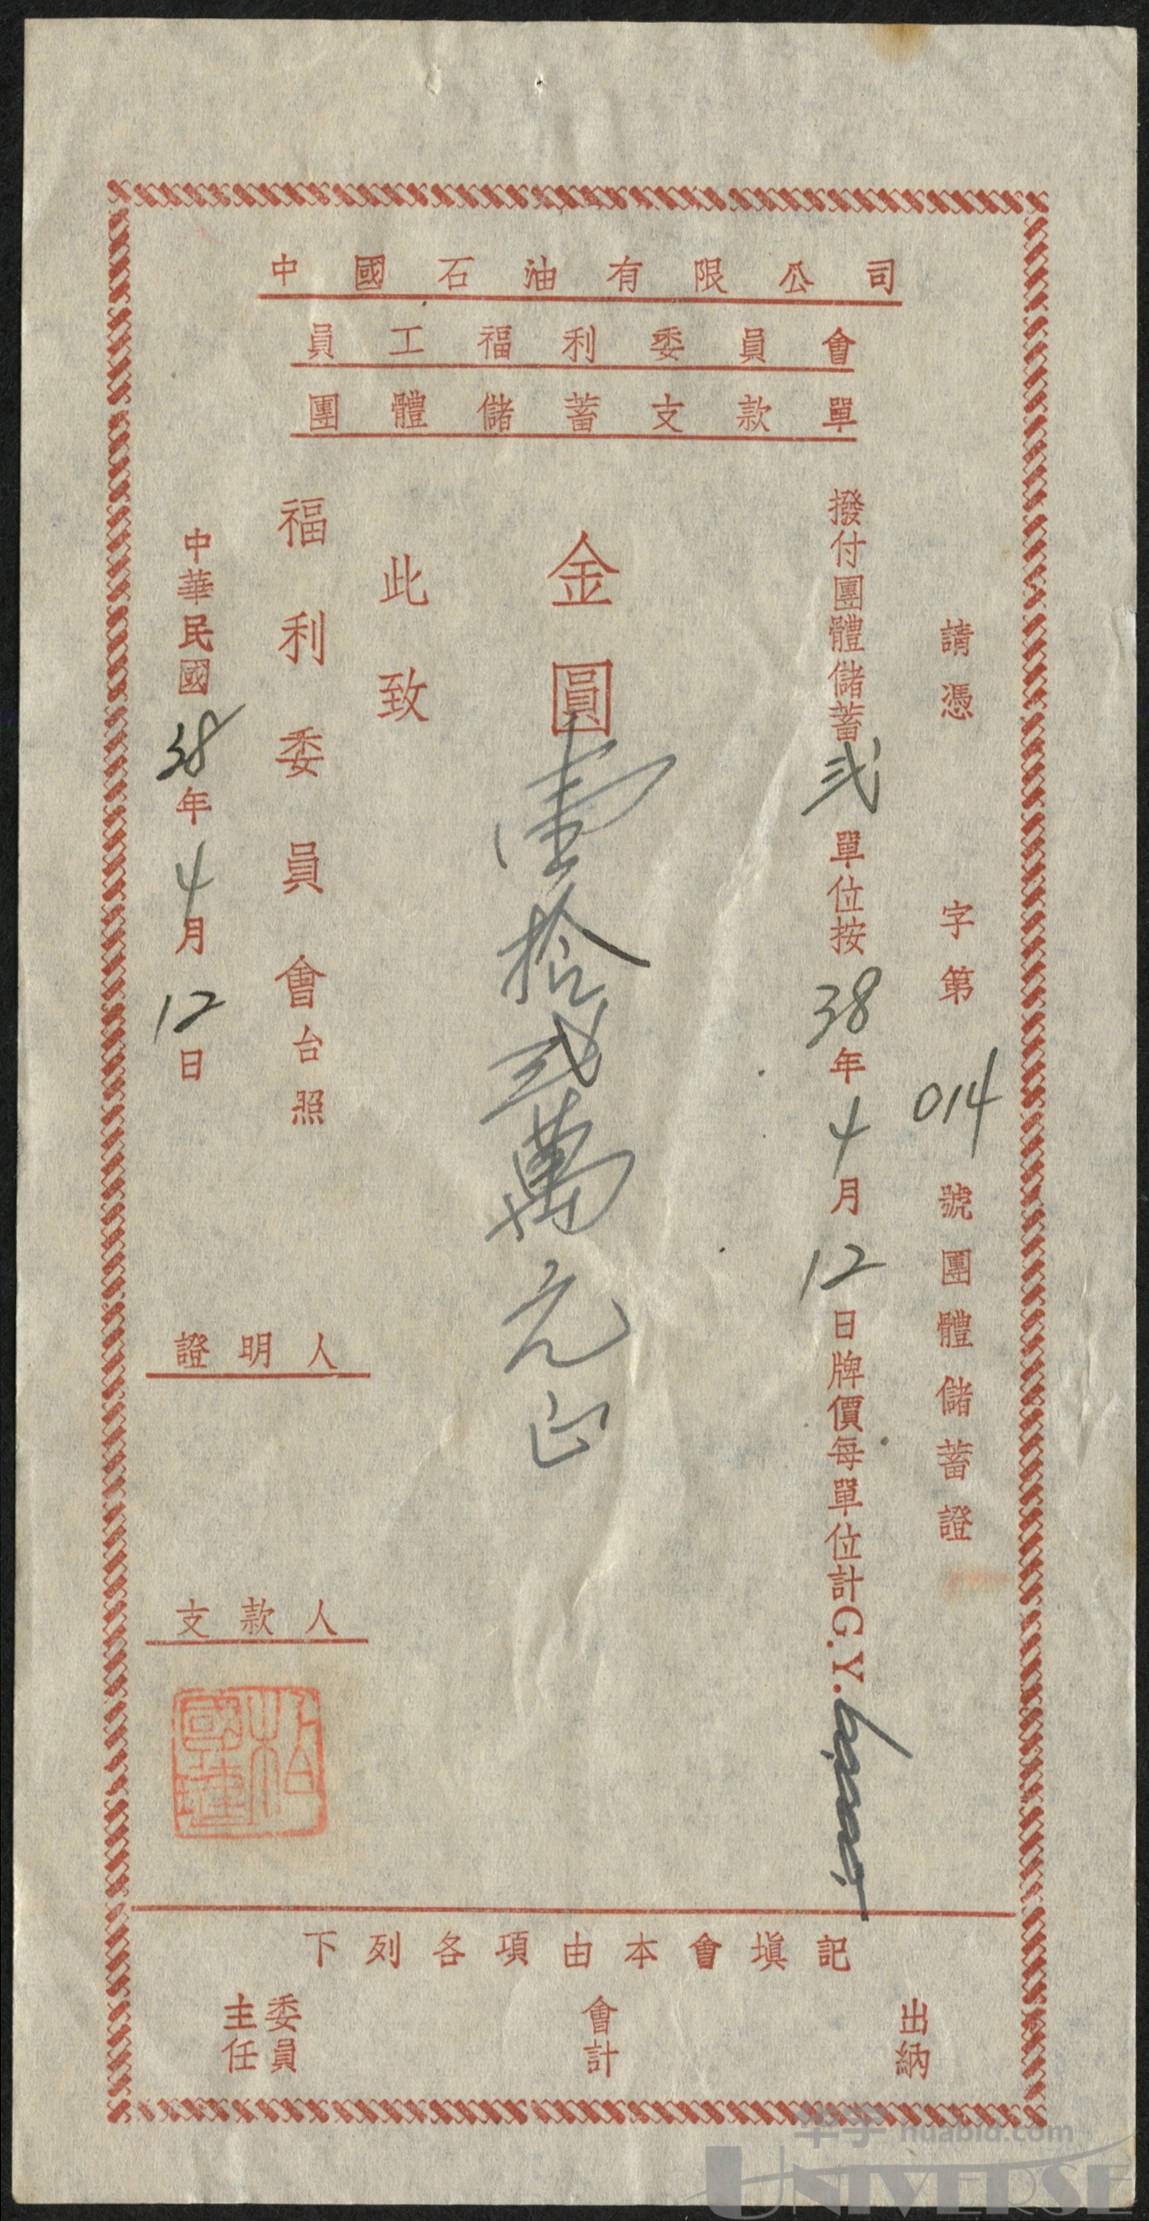 中國石油有限公司
員工福利委員會
團體儲蓄支款單
請憑 字第 014 號團體儲蓄證
撥付團體儲蓄弍單位按38年4月12日牌價每單位計G.Y.
金圓壹拾弍萬元正
此致
福利委員會台照
中華民國38年4月12日
證明人
支款人
下列各項由本會塡記
主任委員
會計
出納
华宇 huabid.com
UNIVERSE